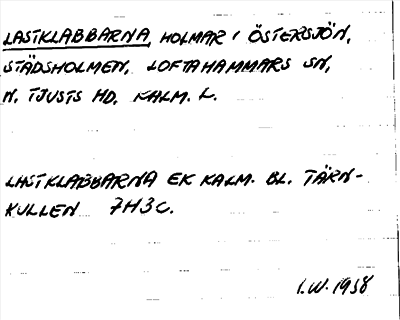 LASTKLABBARNA, HOLMAR I ÖSTERSJÖN,
STÄDSHOLMEN, LOFTAHAMMARS SN,
N. TJUSTS HD, KALM. L.
LASTKLABBARNA EK KALM. BL. TÄRN-
KULLEN 7H3C.
I.W. 1958